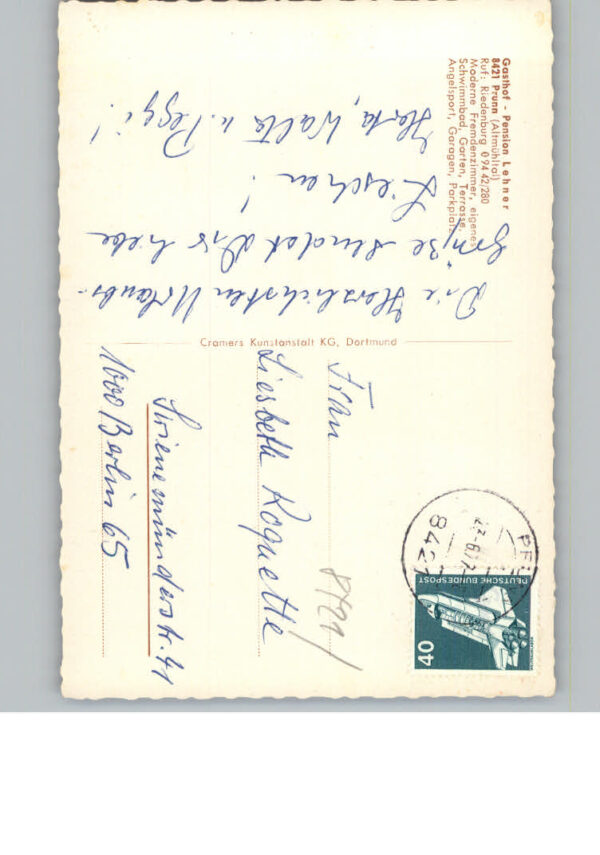 Gasthof - Pension Lehner
8421 Prunn (Altmühltal)
Ruf: Riedenburg 0 94 42/280
Moderne Fremdenzimmer, eigenes
Schwimmbad, Garten, Terrasse,
Angelsport, Garagen, Parkplatz
Die Herzlichsten Urlaubs-
grüße sendet Dir liebe
Lieschen!
Herta, Walter u. Peggi!
Cramers Kunstanstalt KG, Dortmund
DEUTSCHE BUNDESPOST
40
842
Frau
Liesbeth Roquette
Swinemünderstr. 41
1000 Berlin 65
8421